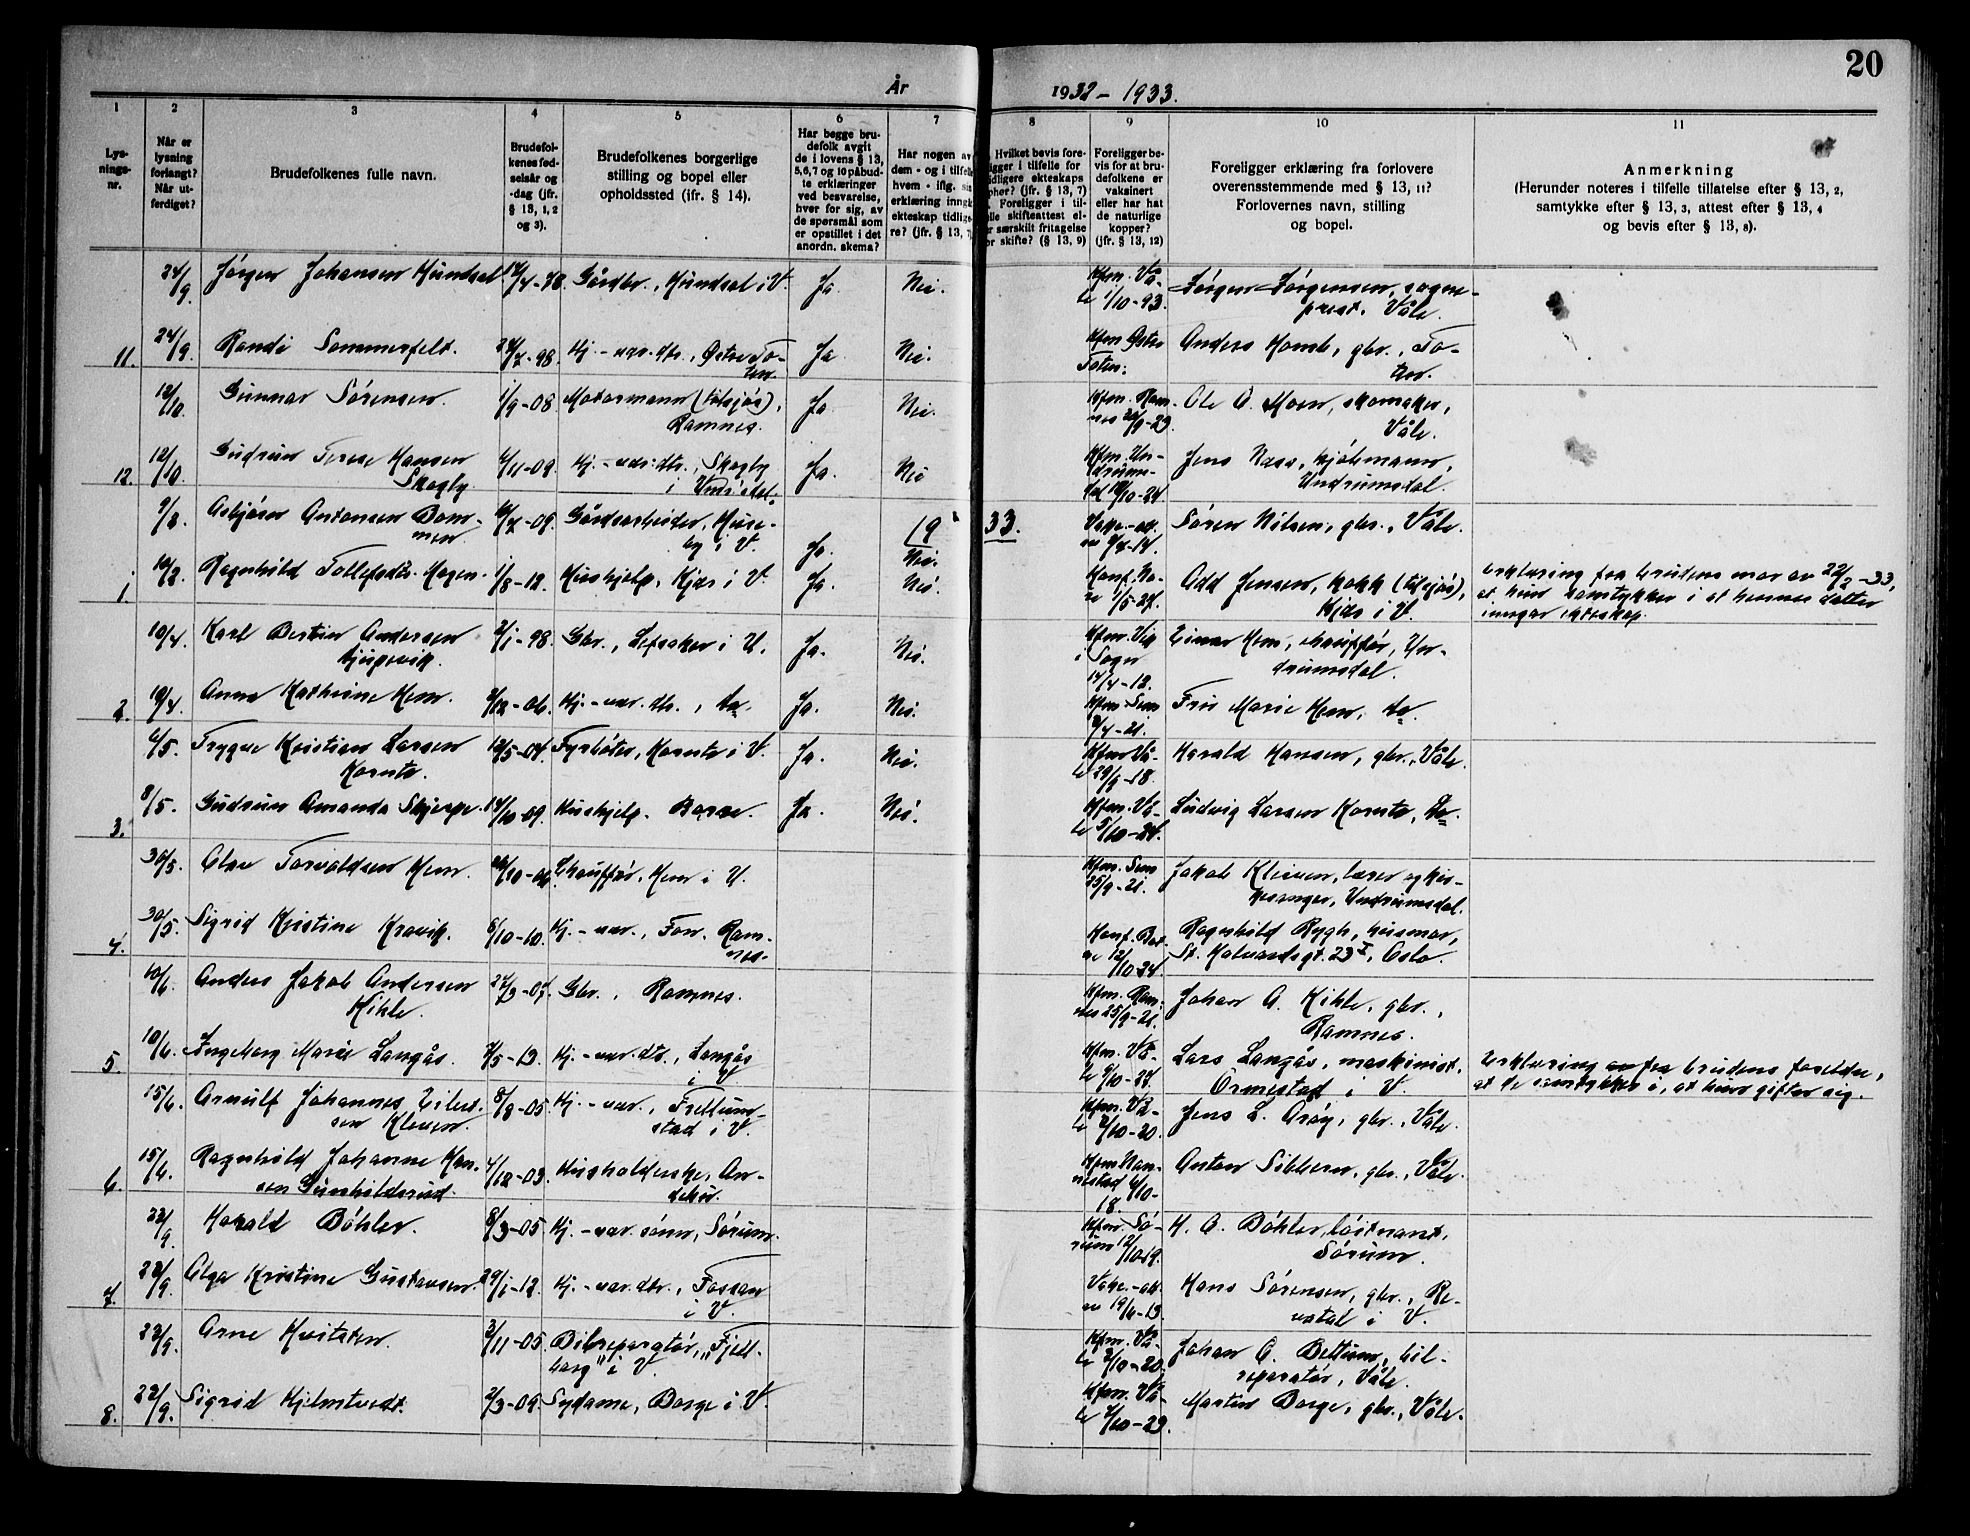 20
År 1932 – 1933.
1 2 3 4 5 6 7 8 9 10 11
Lysnings-
nr.
Når er
lysning
forlangt?
Når ut-
ferdiget?
Brudefolkenes fulle navn.
Brudefol-
kenes fød-
selsår og
-dag (jfr.
§ 13, 1, 2
og 3).
Brudefolkenes borgerlige
stilling og bopel eller
opholdssted (ifr. § 14).
Har begge bru-
defolk avgit
de i lovens § 13,
5,6,7 og 10 påbud-
te erklæringer
ved besvarelse,
hver for sig, av
de spørsmål som
er opstillet i det
anordn. skema?
Har nogen av
dem - og i tilfelle
hvem - iflg. sin
erklæring inngått
ekteskap tidlige-
re? (jfr. § 13, 7)
Hvilket bevis fore-
ligger i tilfelle for
tidligere ekteskaps
ophør? (jfr. § 13, 7)
Foreligger i til-
felle skifteattest el-
ler særskilt fritagelse
for skifte? (§ 13, 9)
Foreligger be-
vis for at bru-
defolkene er
vaksinert
eller har hat
de naturlige
kopper?
(jfr. § 13, 12)
Foreligger erklæring fra forlovere
overensstemmende med § 13, 11?
Forlovernes navn, stilling
og bopel.
Anmerkning
(Herunder noteres i tilfelle tillatelse efter § 13, 2,
samtykke efter § 13, 3, attest efter § 13, 4
og bevis efter § 13, 8).
24/9. Jørgen Johansen Hundsal Gårdbr., Hundsal i V. Ja Nei. Kfm. Vå-
le 1/10-93. Jørgen Jørgensen, sogne-
prest, Våle.
11. 24/9. Randi Sommerfelt. Hj.-vær. dtr., Østre To-
ten. Ja Nei. Kfm Østre
Toten. Anders Homb, gbr., To-
ten.
12/10 Gunnar Sørensen. 1/9-08 Motormann (tilsjøs),
Ramnes. Ja Nei. Kfm. Ram-
nes -23. Ole A. Moen, skomaker,
Våle.
12. 12/10 Gudrun Terese Hansen
Skogby 4/11-09 Hj.-vær. dtr., Skogby
i Ja. Nei Kfm. Un-
drums-
dal /10-24. Jens Næss, hjulmann,
Undrumsdal.
9/2. Asbjørn Antonsen Bom-
men. Gårdsarbeider, Huse-
by i V. Ja. 1933. Nei. Søren Nilsen, gbr., Våle.
1. 10/2. Ragnhild Tollefsdtr. Hagen. 1/8-12 Hushjelp, Kjær i V. Ja. Nei. 1/5-27. Odd Jensen, kokk (tilsjøs),
Kjær i V. Erklæring fra brudens mor av 22/2-33,
at hun samtykker i at hennes datter
inngår ekteskap.
10/4. Karl Bertin Andersen
Ljugsvik. 2/1-98. Gbr., Lefsaker i U. Ja. Nei. Kfm. Vik
i Sogn
14/4-12. Einar Hem, chauffør, Un-
drumsdal.
2. 10/4. Anna Kathrine Hem. /12-06. Hj.-vær. dtr., do. Ja. Nei. Kfm. Sem
/4-21. Fru Marie Hem, do.
4/5. Trygve Kristian Larsen
Kornto. 12/5-04. Fyrbøter, Kornto i V. Ja. Nei. Kfm Vå-
le 29/9-18. Harald Hansen, gbr., Våle.
3. 8/5. Gudrun Amanda Skjerge. 14/10-09. Hushjelp. Borre. Ja. Nei. Kfm. Vå-
le 5/10-24. Ludvig Larsen Kornto, do.
30/5. Olav Torvaldsen Hem. Chauffør, Hem i U. Kfm. Sem
25/9-21. Jakob Kleiven, lærer og kir-
kesanger, Undrumsdal.
4. 30/5. Sigrid Kristine Kravik. 6/10-10. Hj.-vær., Fon, Ram-
nes. 12/10-24. Ragnhild Rygh, husmor,
St. Halvardsgt. 23 I, Oslo.
10/6. Anders Jakob Andersen
Kihle. 27/3-07. Gbr., Ramnes. Kfm. Ram-
nes 25/9-21. Johan A. Kihle, gbr.,
Ramnes.
5. 10/6. Ingeborg Marie Langås. /5-13 Hj.-vær. dtr., Langås
i V Kfm. Vå-
le 9/10-27. Lars Langås, maskinist,
Ormestad i V. Erklæring fra brudens foreldre,
at de samtykker i, at hun gifter sig.
15/6. Arnulf Johannes Eilert-
sen Kleven. 8/8-05. Hj.-vær., Frettum-
stad i V. Kfm. Vå-
le /10-20. Jens L. Årøy, gbr., Våle.
6. 15/6. Ragnhild Johanne Han-
sen Gunhildsrud. 4/12-03. Husholderske, An-
debu. Kfm Nan-
nestad /10-
18. Anton Sibbern, gbr., Våle.
22/9. Harald Bøhler. 8/3-05 Hj.-vær. sønn, Sørum. Kfm. Sø-
rum 12/10-19. H. A. Bøhler, løitnant,
Sørum.
7. 22/9. Olga Kristine Gustavsen. 29/1-12. Hj.-vær. dtr., Fossan
i V. Vaks.-att.
av 19/6-13. Hans Sørensen, gbr., Re-
vetal i V.
22/9. Arne Kvitsten. 3/11-05. Bilreparatør, „Fjell-
borg" i V. Kfm. Vå-
le 2/10-20. Johan A. Bettum, bil-
reparatør, Våle.
8. 22/9. Sigrid Hjelmtvedt. 2/3-09. Sydame, Borge i V. Kfm. Vå-
le 7/10-23. Martin Borge, gbr., Våle.